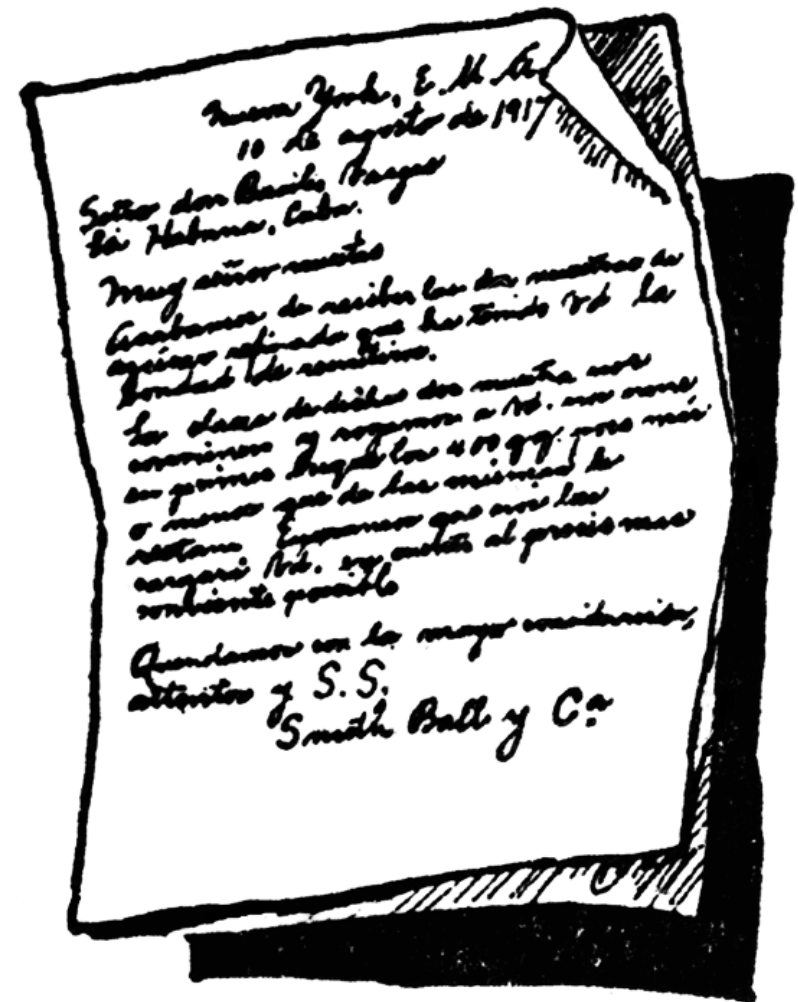 Nueva York, E. U. A.
10 de agosto de 1917
Señor don Basilio Vargas
La Habana, Cuba.
Muy señor nuestro
Acabamos de recibir las dos muestras de
azúcar refinado que ha tenido Vd la
bondad de remitirnos.
La clase de dicha dos muestra nos
conviene y rogamos a Vd. nos
en primer los 400 qq. poco más
o menos que de las mismas le
restan. Esperamos que nos las
cargará Vd. en cuenta al precio mas
conveniente posible
Quedamos con la mayor consideración,
attentos y S. S.
Smith Ball y Cª